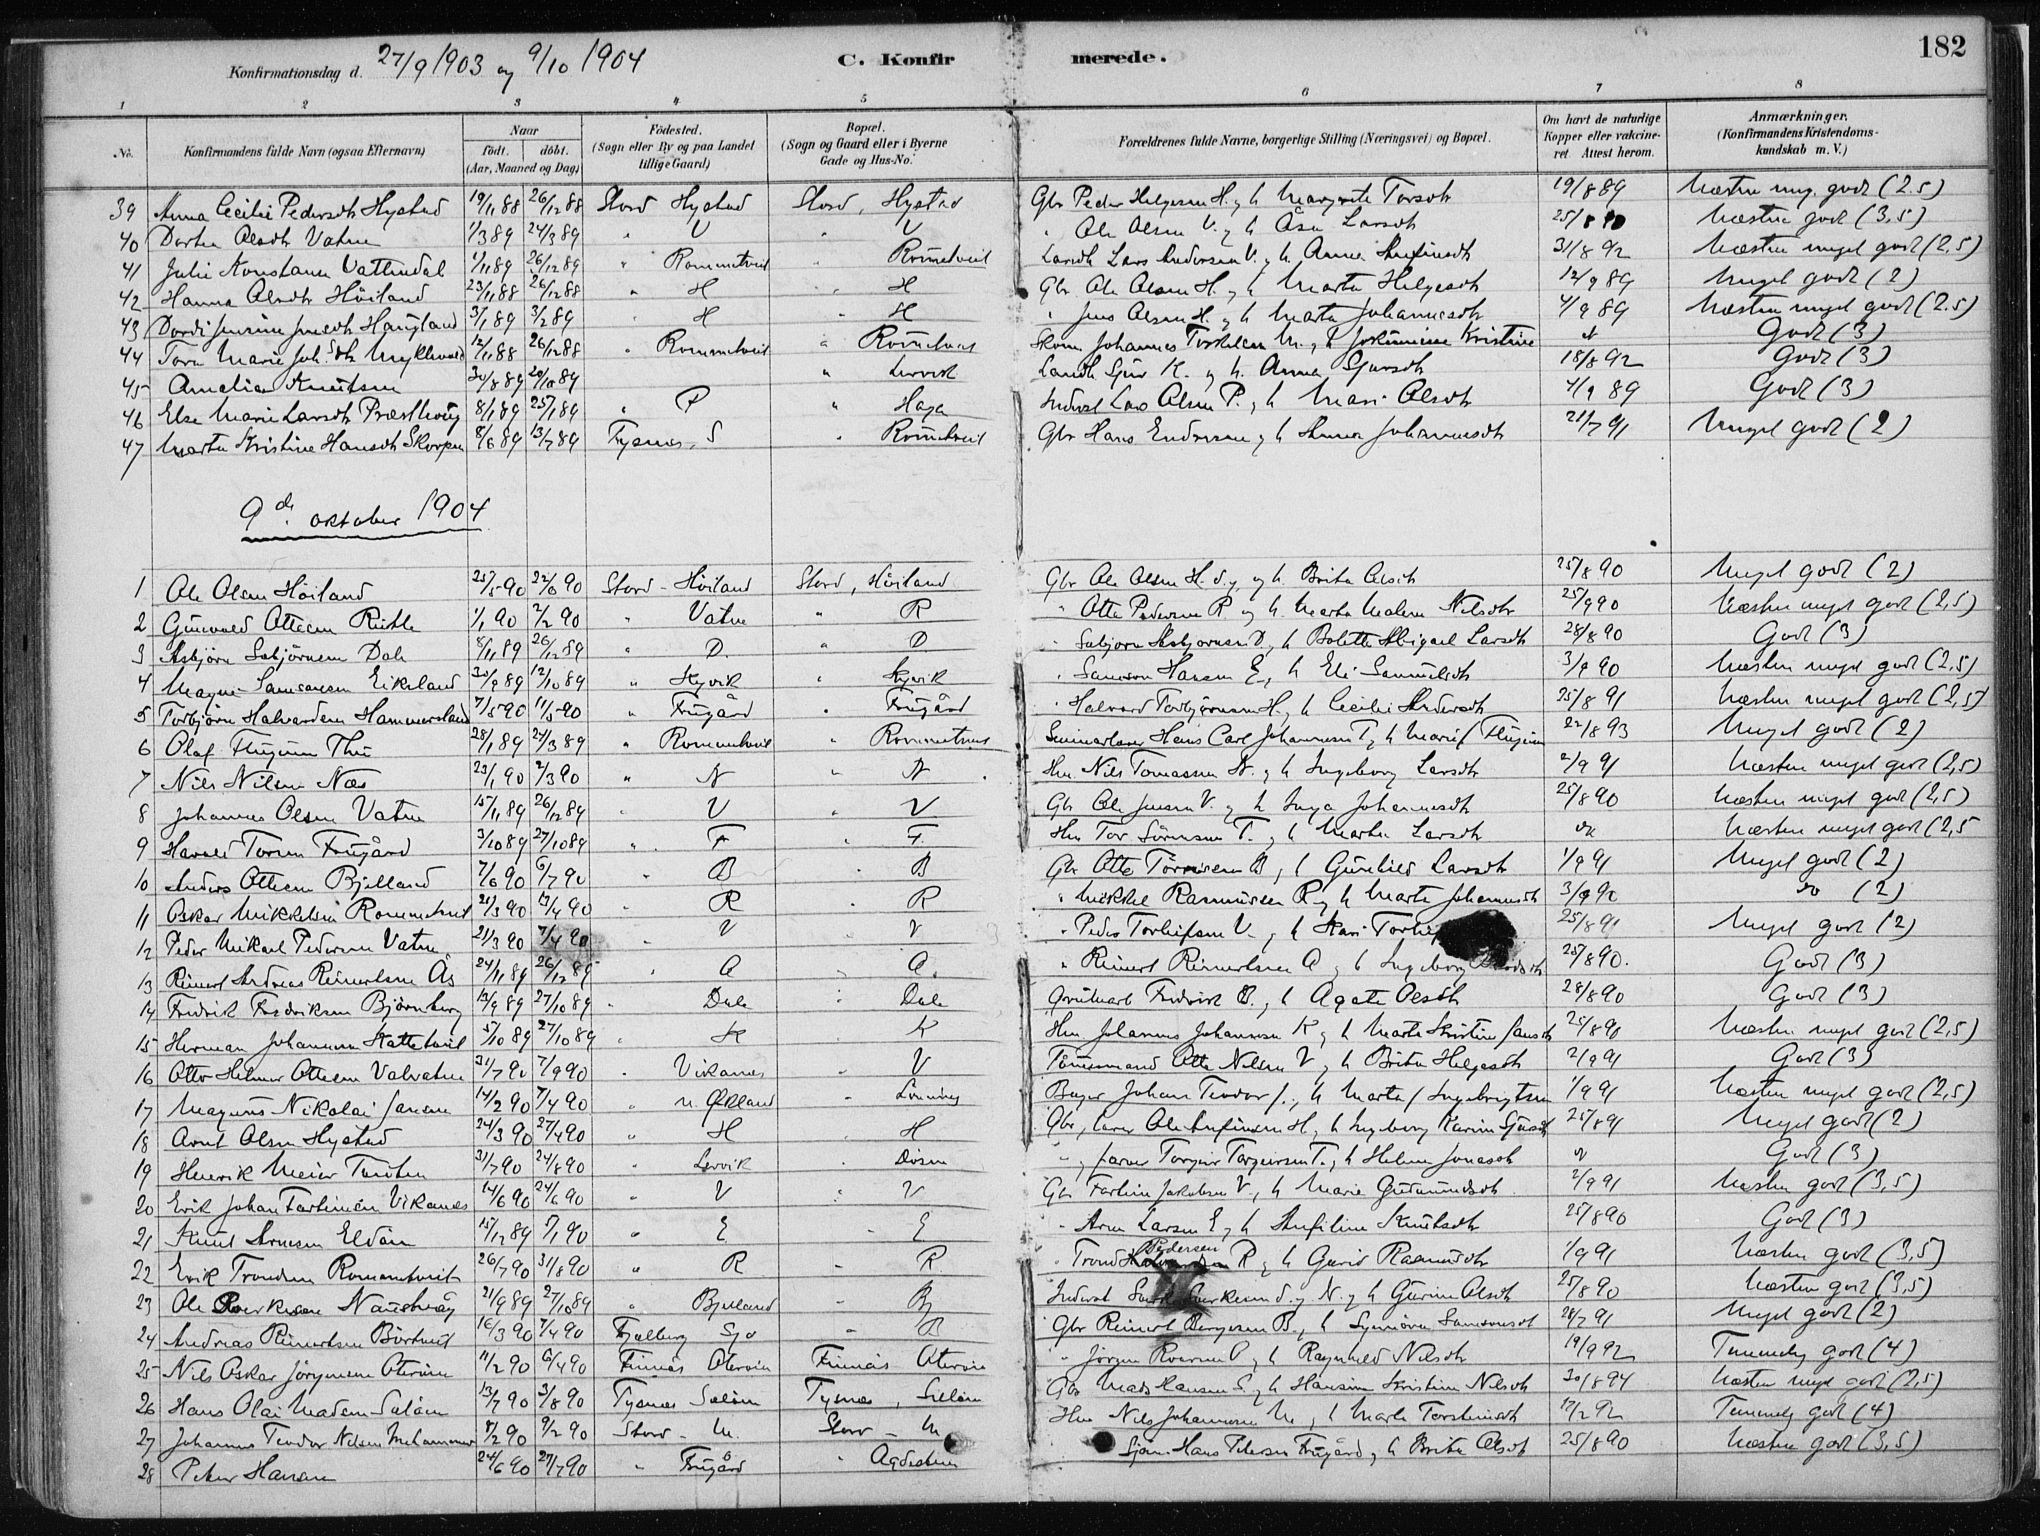 Konfirmationsdag d. 27/9 1903 og 9/10 1904 C. Konfirmerede. 182
1 2 3 4 5 6 7 8
No. Konfirmandens fulde Navn (ogsaa Efternavn) Naar födt. döbt. (Aar, Maaned og Dag) Födested. (Sogn eller By og paa Landet tillige Gaard) Bopæl. (Sogn og Gaard eller i Byerne Gade og Hus-No. Forældrenes fulde Navne, borgerlige Stilling (Næringsvei) og Bopæl. Om havt de naturlige Kopper eller vakcineret. Attest herom. Anmærkninger. (Konfirmandens Kristendomskundskab m. V.)
39 Anna Cecilie Pedersdtr Hystad 19/11 88 26/12 88 Stord Hystad Stord, Hystad Gbr Peder Helgesen H. og h Margrete Torsdtr 19/8 89 Næsten meg. godt (2.5)
40 Dortea Olsdtr Vatne 1/3 89 24/3 89 " V " V " Ole Olsen V. og h Åsa Larsdtr Næsten godt (3,5)
41 Julie Konstanse Vattendal 1/11 89 26/12 89 " Rommetveit Rommetveit Lars Andersen V. og h. Anna 31/8 92 Næsten meget godt (2,5)
42 Hanna Olsdtr Höiland 23/11 88 26/12 88 " H " H Gbr Ole Olsen H. og h Marta Helgesdtr 12/9 89 Meget godt (2)
43 Haugland 3/1 89 3/2 89 " H " H " Jens Olsen H. og h Marta Johannesdtr 4/9 89 Næsten meget godt (2.5)
44 Marie Joh.sdtr 12/11 88 26/12 88 " Rommetveit " Rommetveit Johannes Torkelsen M., h Kristine Godt (3)
45 Amalia Knutsen 30/8 89 20/10 89 " Lervik K. og h. Anna Sjursdtr 18/8 92 Godt (3)
46 Else Marie Larsdtr Præsthoug 8/1 89 25/1 89 " P " Haga Inderst Lars Olsen P., h Mari Olsdtr 4/9 89 Godt (3)
47 Marta Kristine Hansdtr Skorpen 8/6 89 13/7 89 Tysnes, S " Rommetveit Gbr Hans Endresen og h Anna Johannesdtr 21/7 91 Meget godt (2)
9de oktober 1904
1 Ole Olsen Höiland 25/5 90 22/6 90 Stord - Höiland Stord, Höiland Gbr Ole Olsen H. og h Brita Olsdtr 25/8 90 Meget godt (2)
2 Gunvald Ottesen 1/1 90 2/2 90 " Vatne " R " Otte Pedersen R og h Marta Malene Nilsdtr 25/9 90 Næsten meget godt (2,5)
3 Asbjörn Sebjörnsen Dale 8/11 89 26/12 89 " D. " D " Sebjörn Asbjörnsen D., h Bolette Abigael Larsdtr 28/8 90 Godt (3)
4 Magne Samsonsen Eikeland 30/9 89 12/10 89 " Kyvik " Kyvik " Samson Hansen E., h Eli Samuelsdtr 3/9 90 Næsten meget godt (2,5)
5 Torbjörn Halvardsen Hammersland 7/5 90 11/5 90 " Frugård " Frugård " Halvard Torbjörnsen H., h Cecilie Andersdtr 25/8 91 Næsten meget godt (2,5)
6 Olaf Thu 28/1 89 24/3 89 " Rommetveit " Rommetveit Seminarlærer Hans Carl Johannesen T., h Marie 22/8 93 Meget godt (2)
7 Nils Nilsen Næs 23/1 90 2/3 90 " N " N Hm Nils Tomassen N. og h Ingeborg Larsdtr 2/9 91 Næsten meget godt (2,5)
8 Johannes Olsen Vatne 15/11 89 26/12 89 " V " V Gbr Ole Jensen V. og h Inga Johannesdtr 25/8 90 Næsten meget godt (2,5)
9 Harald Torsen Frugård 3/10 89 27/10 89 " F " F Hm Tor Sörensen F., h Marta Larsdtr Næsten meget godt (2,5
10 Anders Ottesen Bjelland 7/6 90 6/7 90 " B " B Gbr Otte B, h Gunhild Larsdtr 1/9 91 Meget godt (2)
11 Oskar Mikkelsen Rommetveit 21/3 90 13/4 90 " R " R " Mikkel Rasmussen R og h Marta Johannesdtr 3/9 90 do (2)
12 Peder Mikael Pedersen Vatne 21/3 90 7/4 90 " V " V " Peder Torleifsen V. og h Kari 25/8 91 Meget godt (2)
13 Reinert Andreas Reinertsen Ås 24/11 89 26/12 89 " A " A. " Reinert Reinertsen A og h Ingeborg 25/8 90. Godt (3)
14 Fredrik Fredriksen Björnberg 13/9 89 27/10 89 " Dale " Dale Fredrik B., h Agate Olsdtr 28/8 90 Godt (3)
15 Herman Johannesen Kattetveit 5/10 89 27/10 89 " K " K Hm Johannes Johannesen K og h Marta Kristine 25/8 90 Næsten meget godt (2,5)
16 Otto Helmer Ottesen Valvatne 31/7 90 7/9 90 " Vikanes " V Tömmermand Otte Nilsen V og h Brita Helgesdtr 2/9 91 Godt (3)
17 Magnus Nikolai Jansen 14/2 90 7/4 90 " Lönning Bager Johan Teodor J., h Marta Ingebrigtsen 1/9 91 Næsten meget godt (2,5)
18 Arnt Olsen Hystad 24/3 90 27/4 90 " H " H Gbr, farver Ole H, h Ingeborg Karine 25/8 91 Meget godt (2)
19 Henrik Meier 31/7 90 24/8 90 " Lervik " " , farver Torgeir Torgeirsen T., h Helene Jonasdtr Godt (3)
20 Erik Johan Farteinsen Vikanes 14/6 90 24/6 90 " V " V Gbr Fartein Jakobsen V., h Marie Gudmundsdtr 2/9 91 Næsten godt (3,5)
21 Knut Arnesen Eldöen 15/12 89 5/1 90 " E " E " Arne Larsen E, h Knutsdtr 25/8 90 Godt (3)
22 Erik Trondsen Rommetveit 26/7 90 31/8 90 " R " R " Trond Pedersen R og h Guri Rasmusdtr 1/9 91 Næsten godt (3,5)
23 Ole 21/9 89 27/10 89 " Bjelland " Bj Inderst N. og h Gurine Olsdtr 25/8 90 Næsten godt (3,5)
24 Andreas Reinertsen Börtveit 16/3 90 7/4 90 Fjelberg " B Gbr Reinert B., h Synnöva Samsonsdt 28/7 91 Meget godt (2)
25 Nils Oskar Jörgensen Oteröen 11/2 90 6/4 90 Finnås Oteröen Finnås Oteröen " Jörgen O., h Ragnhild Nilsdtr 19/9 92 Temmelig godt (4)
26 Hans Olai Madsen Selöen 13/7 90 3/8 90 Tysnes Selöen Tysnes, Selöen Gbr Mads Hansen S. og h Hansine Kristine Nilsdtr 30/8 94 Næsten meget godt (2,5)
27 Johannes Teodor Nilsen 8/2 90 9/2 90 Stord - M. Stord - M Hm Nils Johannesen M., h Marta Torsteinsdtr 17/2 92 Temmelig godt (4)
28 Peter Hansen 24/6 90 27/7 90 " Frugård " Agdestein Sjöm. Hans Petersen Frugård, h Brita Olsdt 25/8 90 Næsten godt (3,5)